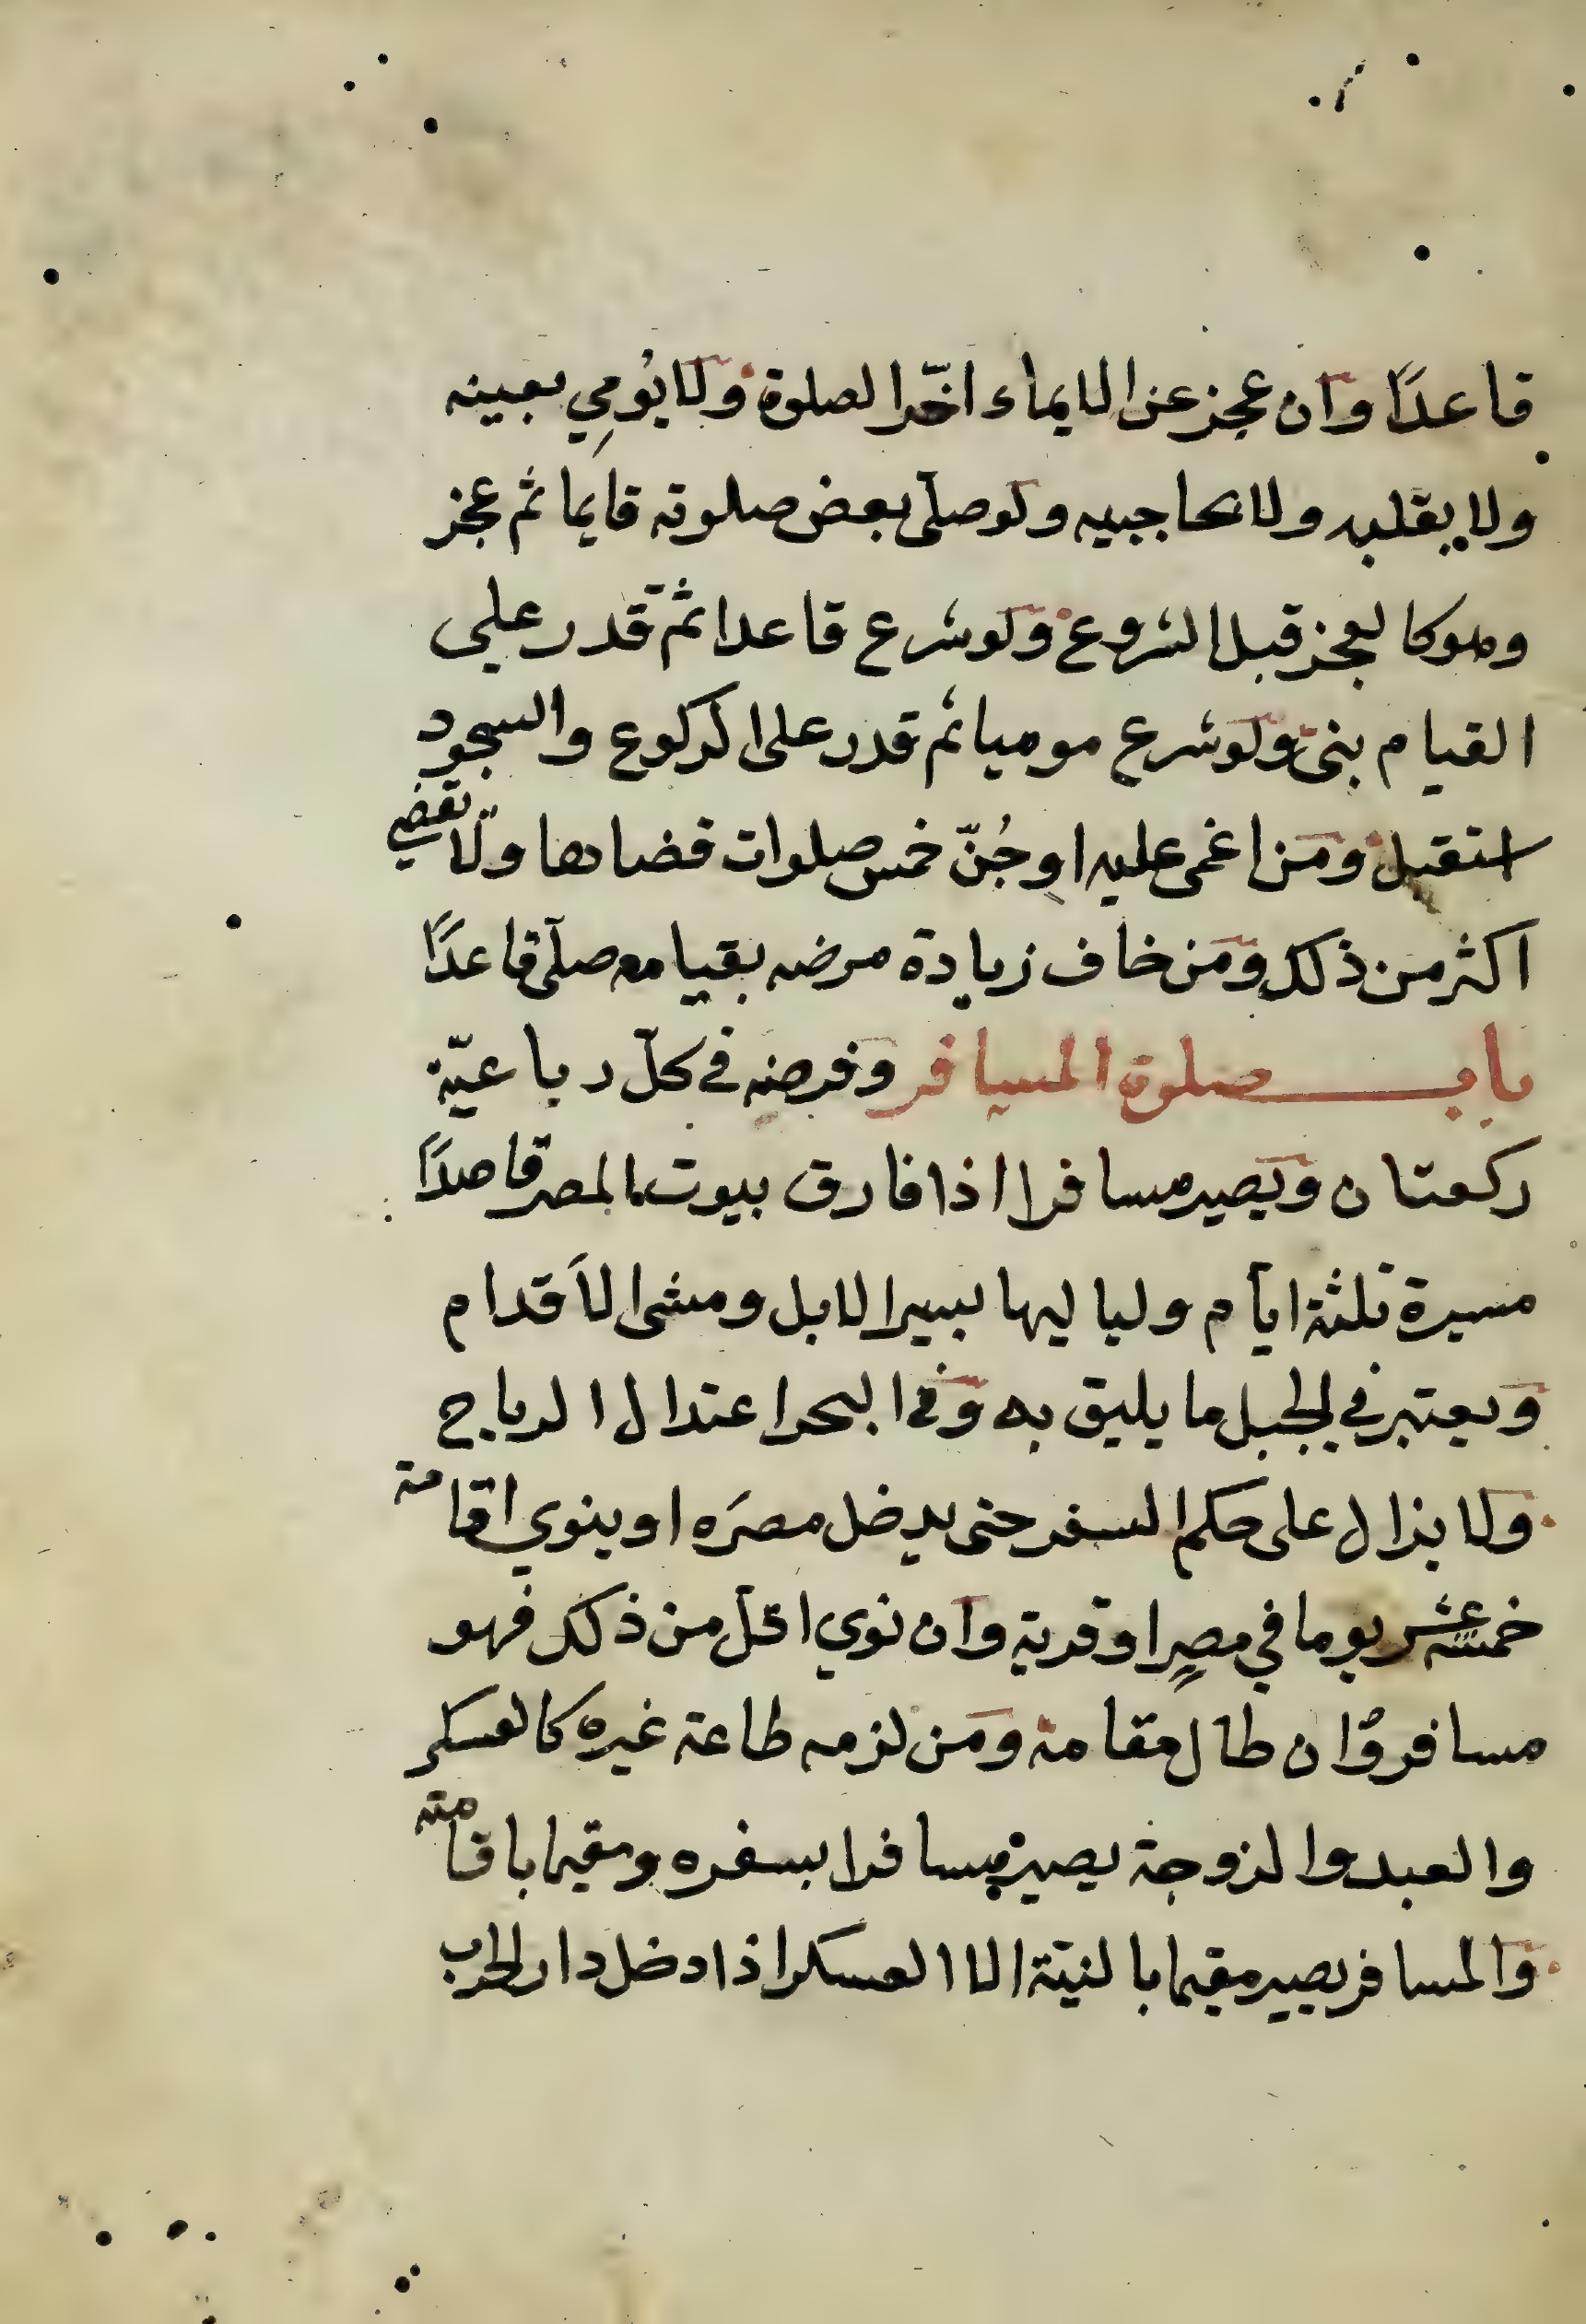 قاعدًا وان عجز عن الايماء اخّر الصلوة ولا يُومِي بعينه
ولا بقلبه ولا بحاجبيه ولو صلّى بعض صلوته قايما ثم عجز
وهو كالعجز قبل الشروع ولو شرع قاعدا ثم قدر على
القيام بنى ولو شرع موميا ثم قدر على الركوع والسجود
استقبل ومن اغمى عليه او جُنّ خمس صلوات قضاها ولا تقضي
اكثر من ذلك ومن خاف زيادة مرضه بقيامه صلّى قاعدًا
باب صلوة المسافر وفرضه في كلّ رباعيّة
ركعتان ويصير مسافرا اذا فارق بيوت المصر قاصدًا
مسيرة ثلثة ايّام ولياليها بسير الابل ومشى الأقدام
ويعتبر في الجبل ما يليق به وفي البحر اعتدال الرياح
ولا يزال على حكم السفر حتى يدخل مصرَه او ينوي اقامة
خمسة عشر يوما في مصرٍ او قرية وان نوي اقلّ من ذلك فهو
مسافر وان طال مقامه ومن لزمه طاعة غيره كالعسكر
والعبد والزوجة يصير مسافرا بسفره ومقيما باقامته
والمسافر يصير مقيما بالنيّة الا العسكر اذا دخل دار الحرب